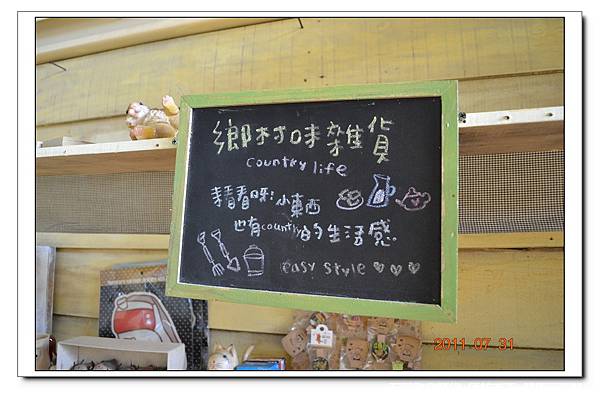 鄉村味雜貨
country life
來看看呀!小東西
也有country的生活感
easy style
2011 07 31